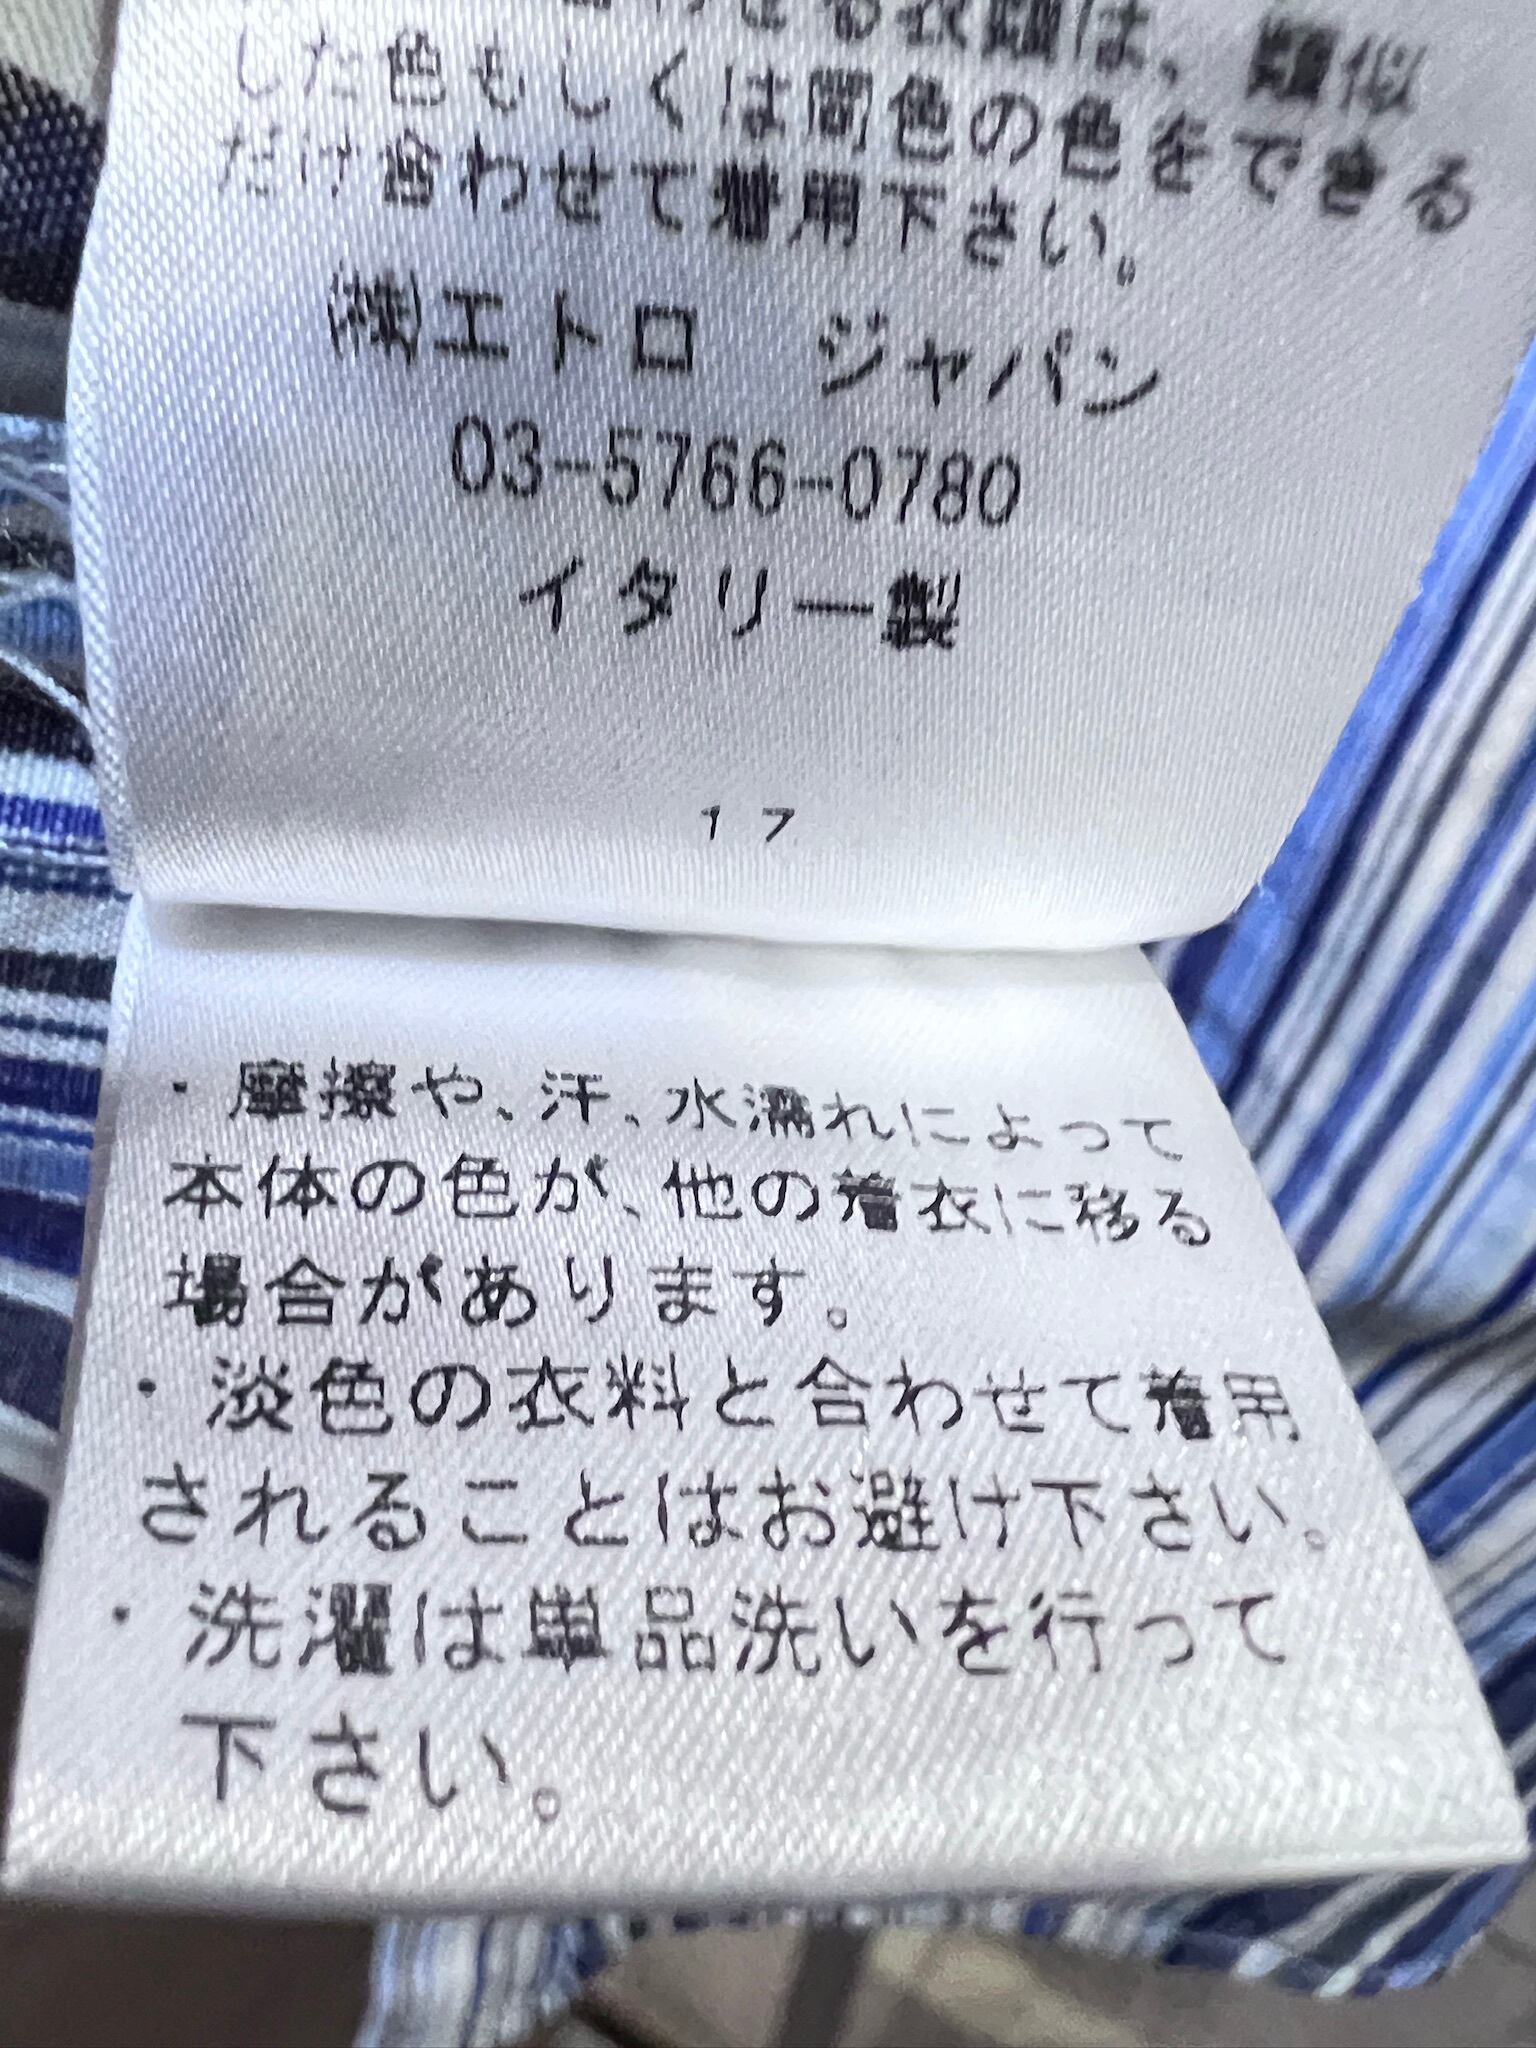 せる衣類は、類似
した色もしくは同色の色をできる
だけ合わせて着用下さい。
㈱エトロ　ジャパン
03-5766-0780
イタリー製
17
・摩擦や、汗、水濡れによって
本体の色が、他の着衣に移る
場合があります。
・淡色の衣料と合わせて着用
されることはお避け下さい。
・洗濯は単品洗いを行って
下さい。